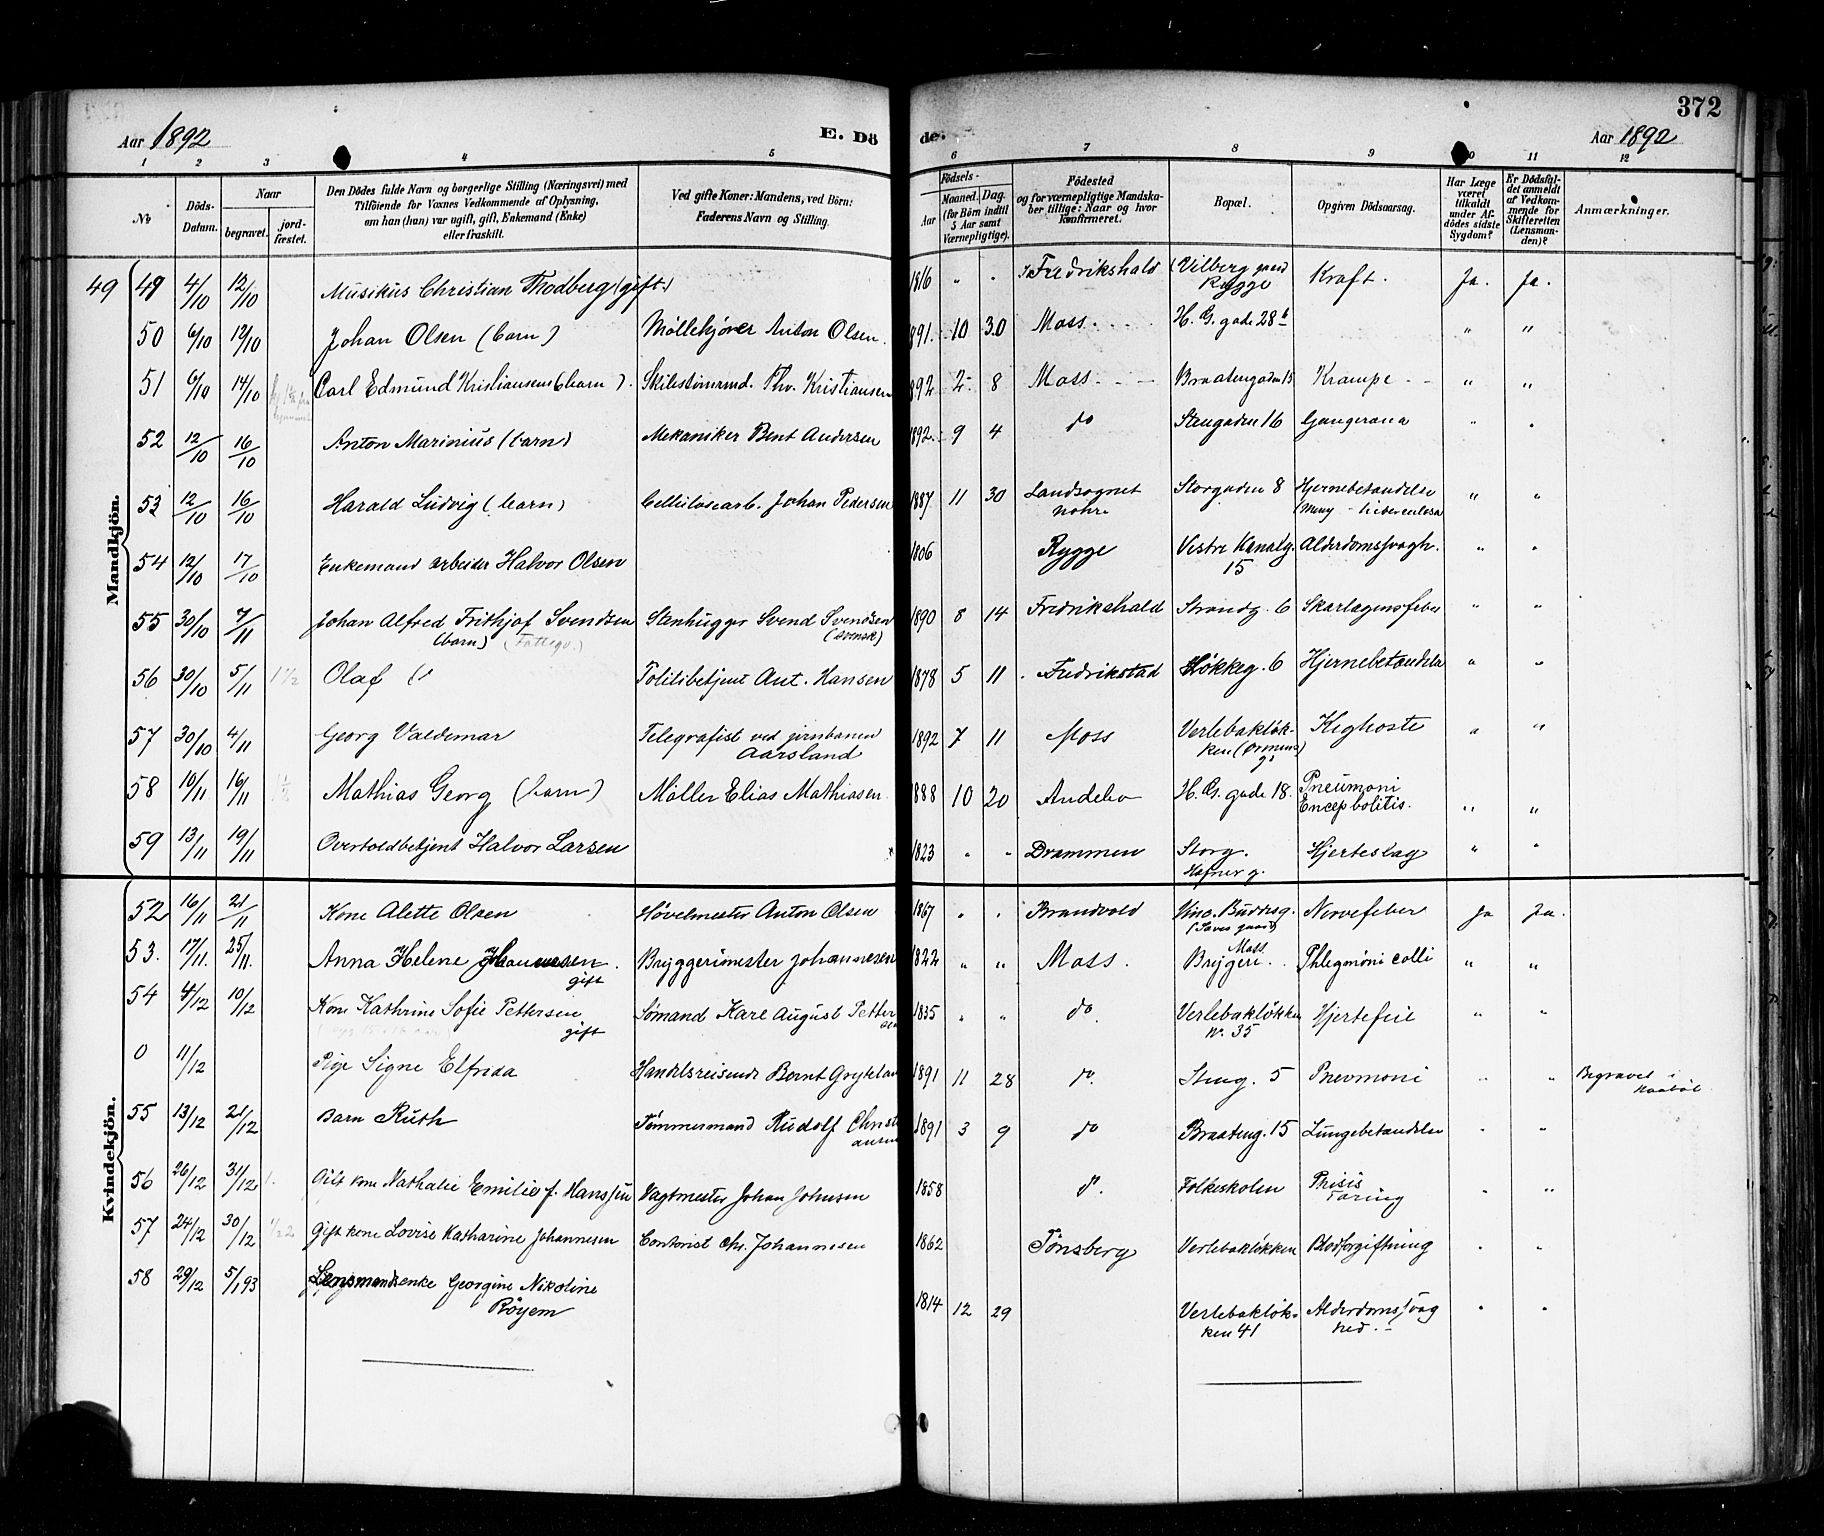 372
Aar 1892 E. Dö de. Aar 1892
1 2 3 4 5 6 7 8 9 10 11 12
No Döds-Datum. Naar begravet. jord-fæstet. Den Dödes fulde Navn og borgerlige Stilling (Næringsvei) med Tilföiende for Voxnes Vedkommende af Oplysning, om han (hun) var ugift, gift, Enkemand (Enke) eller fraskilt. Ved gifte Koner: Mandens, ved Börn: Faderens Navn og Stilling. Födsels- Aar Maaned. Dag. (for Börn indtil 5 Aar samt Værnepligtige). Födested og for værnepligtige Mandska-ber tillige: Naar og hvor konfirmeret. Bopæl. Opgiven Dödsaarsag. Har Læge været tilkaldt under Af-dödes sidste Sygdom? Er Dödsfal-det anmeldt af Vedkom-mende for Skifteretten (Lensman-den)? Anmærkninger.
Mandkjön.
49 49 4/10 12/10 Musikus Christian Thodberg (gift) 1816 " " Fredrikshald (Vilberg gaard Rygge Kraft. Ja. Ja.
50 6/10 12/10 Johan Olsen (barn) Möllekjörer Anton Olsen. 891. 10 30 Moss. H. G. gade 28 b " "
51 6/10 14/10 Carl Edmund Kristiansen (barn). Skibstömrmd. Thv. Kristiansen 892 2 8 Moss Braatengaden 15 Krampe " "
52 12/10 16/10 Anton Marinius (barn) Mekaniker Bent Andersen 1892. 9 4 do Stengaden 16 Gangerana " "
53 12/10 16/10 Harald Ludvig (barn) Cellulosearb. Johan Pedersen 1887 11 30 Landsognet Storgaden 8 Hjernebetændelse " "
54 12/10 17/10 Enkemand arbeider Halvor Olsen 1806 Rygge Vestre Kanalg. 15 Alderdomssvagh. " "
55 30/10 7/11 Johan Alfred Frithjof Svendsen (barn) (Fattigv.) Stenhugger Svend Svendsen (svensk) 1890 8 14 Fredrikshald Strandg. 6 Skarlagensfeber " "
56 30/10 5/11 Olaf (" Politibetjent Ant. Hansen 1878 5 11 Fredrikstad Lökkeg. 6 Hjernebetændelse " "
57 30/10 4/11 Georg Valdemar Telegrafist ved jernbanen Aarsland 1892 7 11 Moss Verlebaklök-ken Kighoste " "
58 10/11 16/11 Mathias Georg (barn) Möller Elias Mathiasen. 1888 10 20 Andebo H. G. gade 18. Pneumoni " "
59 13/11 19/11 Overtoldbetjent Halvor Larsen 1823 " " Drammen Storg. Hafner g. Hjerteslag " "
Kvindekjön.
52 16/11 21/11 Kone Alette Olsen Hövelmester Anton Olsen 1867 " " Brandvold Vinc. Buddesg. Nervefeber Ja Ja.
53. 17/11. 25/11. Anna Helene Johannesen. gift Bryggerimester Johannesen 1822 " " Moss. Moss Bryggeri. Phlegmöni colli " "
54 4/12 10/12 Kone Kathrine Sofie Pettersen gift Sömand Karl August Petter sen 1835 " " do Verlebaklökken Nr. 35 Hjertefeil " "
0 11/12 Pige Signe Elfrida Handelsreisende Bernt 1891 11 28 do. Steng. 5 Pnevmoni " " Begravet i
55 13/12 21/12 Barn Ruth Tömmermand Rudolf Christi ansen 1891 3 9 do Braateng. 15 Lungebetændelse " "
56 26/12 31/12 Gift kone Nathalie Emilie f. Hanssen Vagtmester Johan Johnsen 1858 do. Folkeskolen Phisis Tæring " "
57 24/12 30/12 Gift kone Lovise Katharine Johannesen Contorist Chr. Johannesen 1862 Tönsberg Verlebaklökken Blodforgiftning " "
58 29/12 5/1 93 Lensmandsenke Georgine Nikoline Röyem 1814 12 29 Verlebaklök-ken 41 Alderdomssvag hed. " "